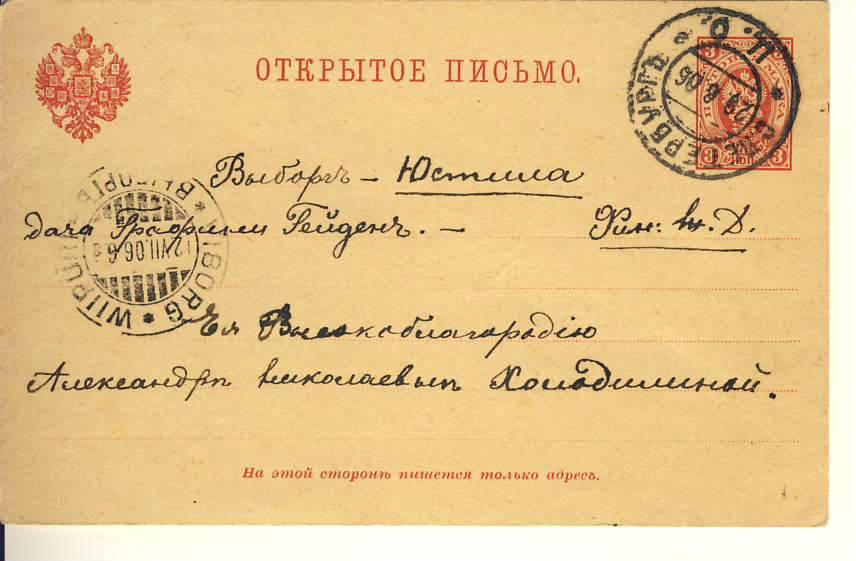 ОТКРЫТОЕ ПИСЬМО.
Выборгъ – Юстила
дача Графини Гейденъ. – Фин. ж. Д.
Ея Высокоблагородію
Александрѣ Николаевнѣ Холодилиной.
На этой сторонѣ пишется только адресъ.
WIBORG * WIIPURI * ВЫБОРГЪ *
12.VII.06.6
С. ПЕТЕРБУРГЪ
29 6 06
3 3